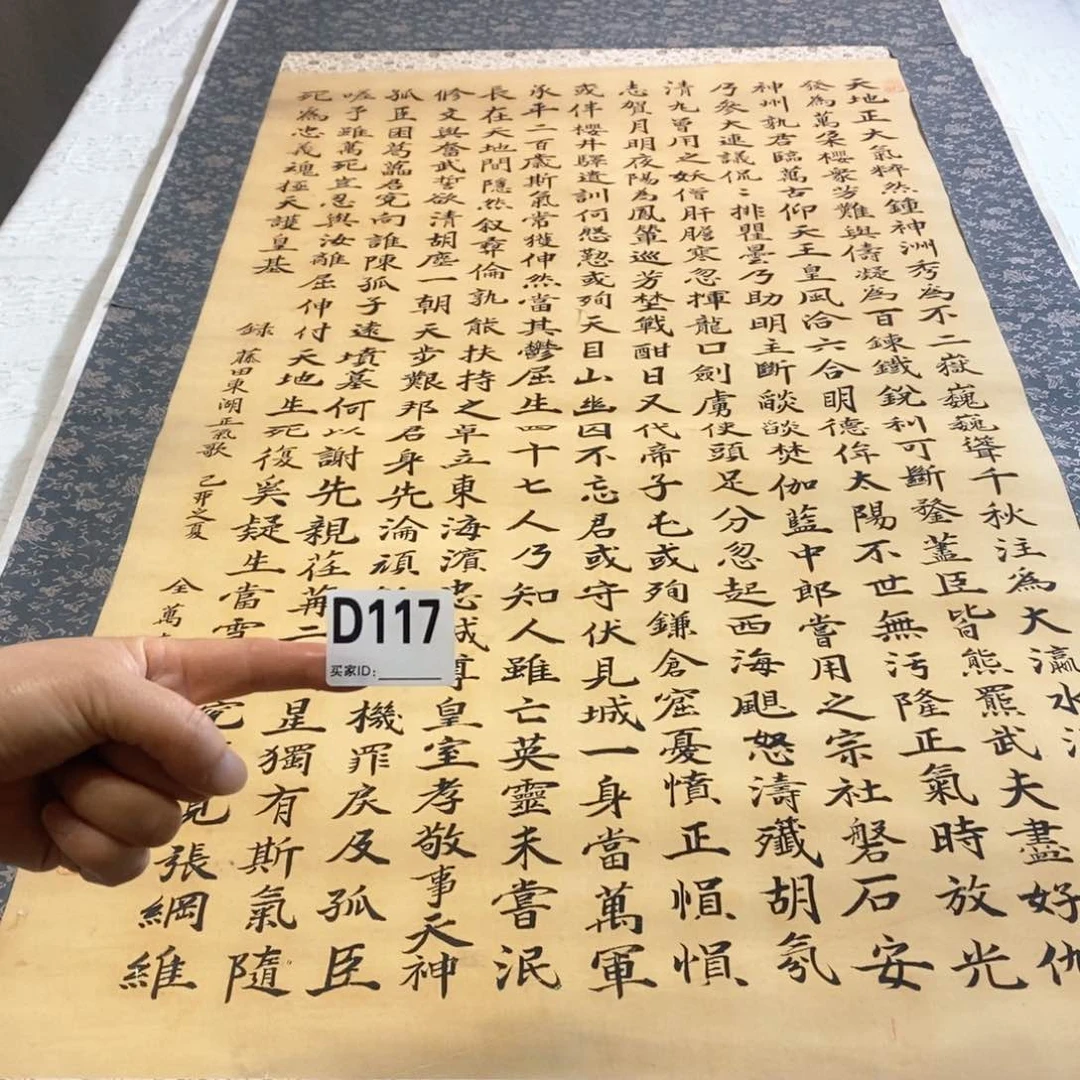 天地正大氣粹然鍾神洲秀為不二嶽巍巍聳千秋注為大瀛水
發為萬朶櫻衆芳難與儔凝為百鍊鐵銳利可斷鍪藎臣皆熊羆武夫盡好仇
神州孰君臨萬古仰天王皇風洽六合明德侔太陽不世無汚隆正氣時放光
乃參大連議侃〻排瞿曇乃助明主斷燄燄焚伽藍中郎嘗用之宗社磐石安
清丸曾用之妖僧肝膽寒忽揮龍口劍虜使頭足分忽起西海颶怒濤殲胡氛
志賀月明夜陽為鳳輦巡芳埜戰酣日又代帝子屯或殉鎌倉窟憂憤正愪愪
或伴櫻井驛遺訓何慇懃或殉天目山幽囚不忘君或守伏見城一身當萬軍
承平二百歳斯氣常獲伸然當其鬱屈生四十七人乃知人雖亡英靈未嘗泯
長在天地間隱然叙彝倫孰能扶持之卓立東海濱忠誠尊皇室孝敬事天神
修文與奮武誓欲清胡塵一朝天步艱邦君身先淪頑機罪戻及孤臣
孤臣困葛藟君冤向誰陳孤子遠墳墓何以謝先親荏苒二星獨有斯氣隨
嗟予雖萬死豈忍與汝離屈伸付天地生死復奚疑生當雪冤見張綱維
死為忠義魂極天護皇基
録 藤田東湖正氣歌 己卯之夏 全萬
D117
买家ID: